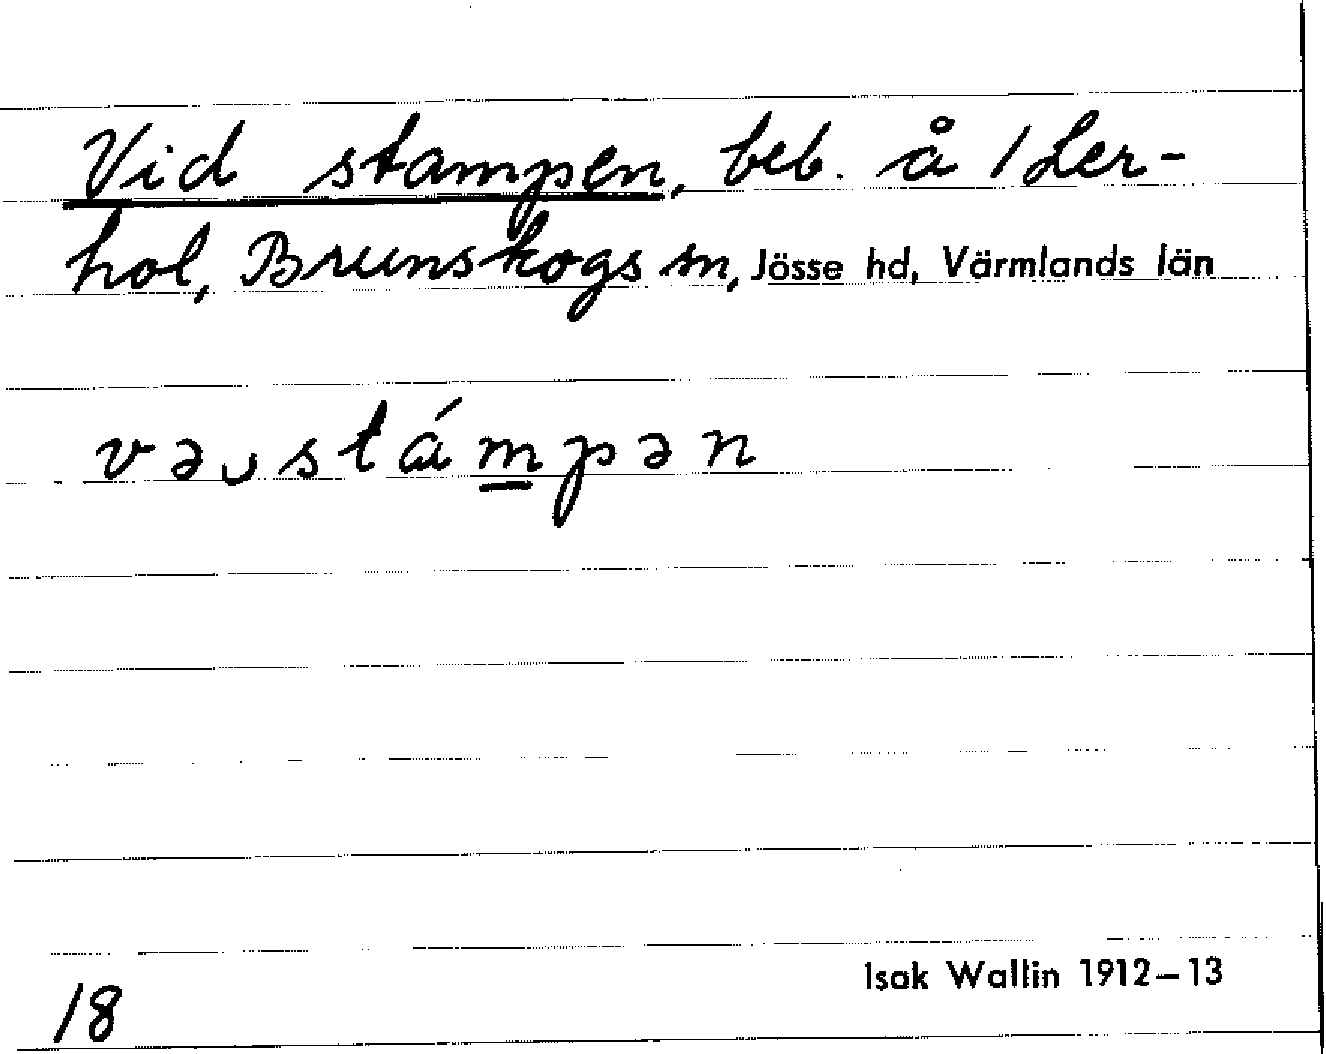 Vid stampen, beb. å 1 Ler-
hol, Brunskogs sn, Jösse hd, Värmlands län
və‿stámpən
Isak Wallin 1912–13
18